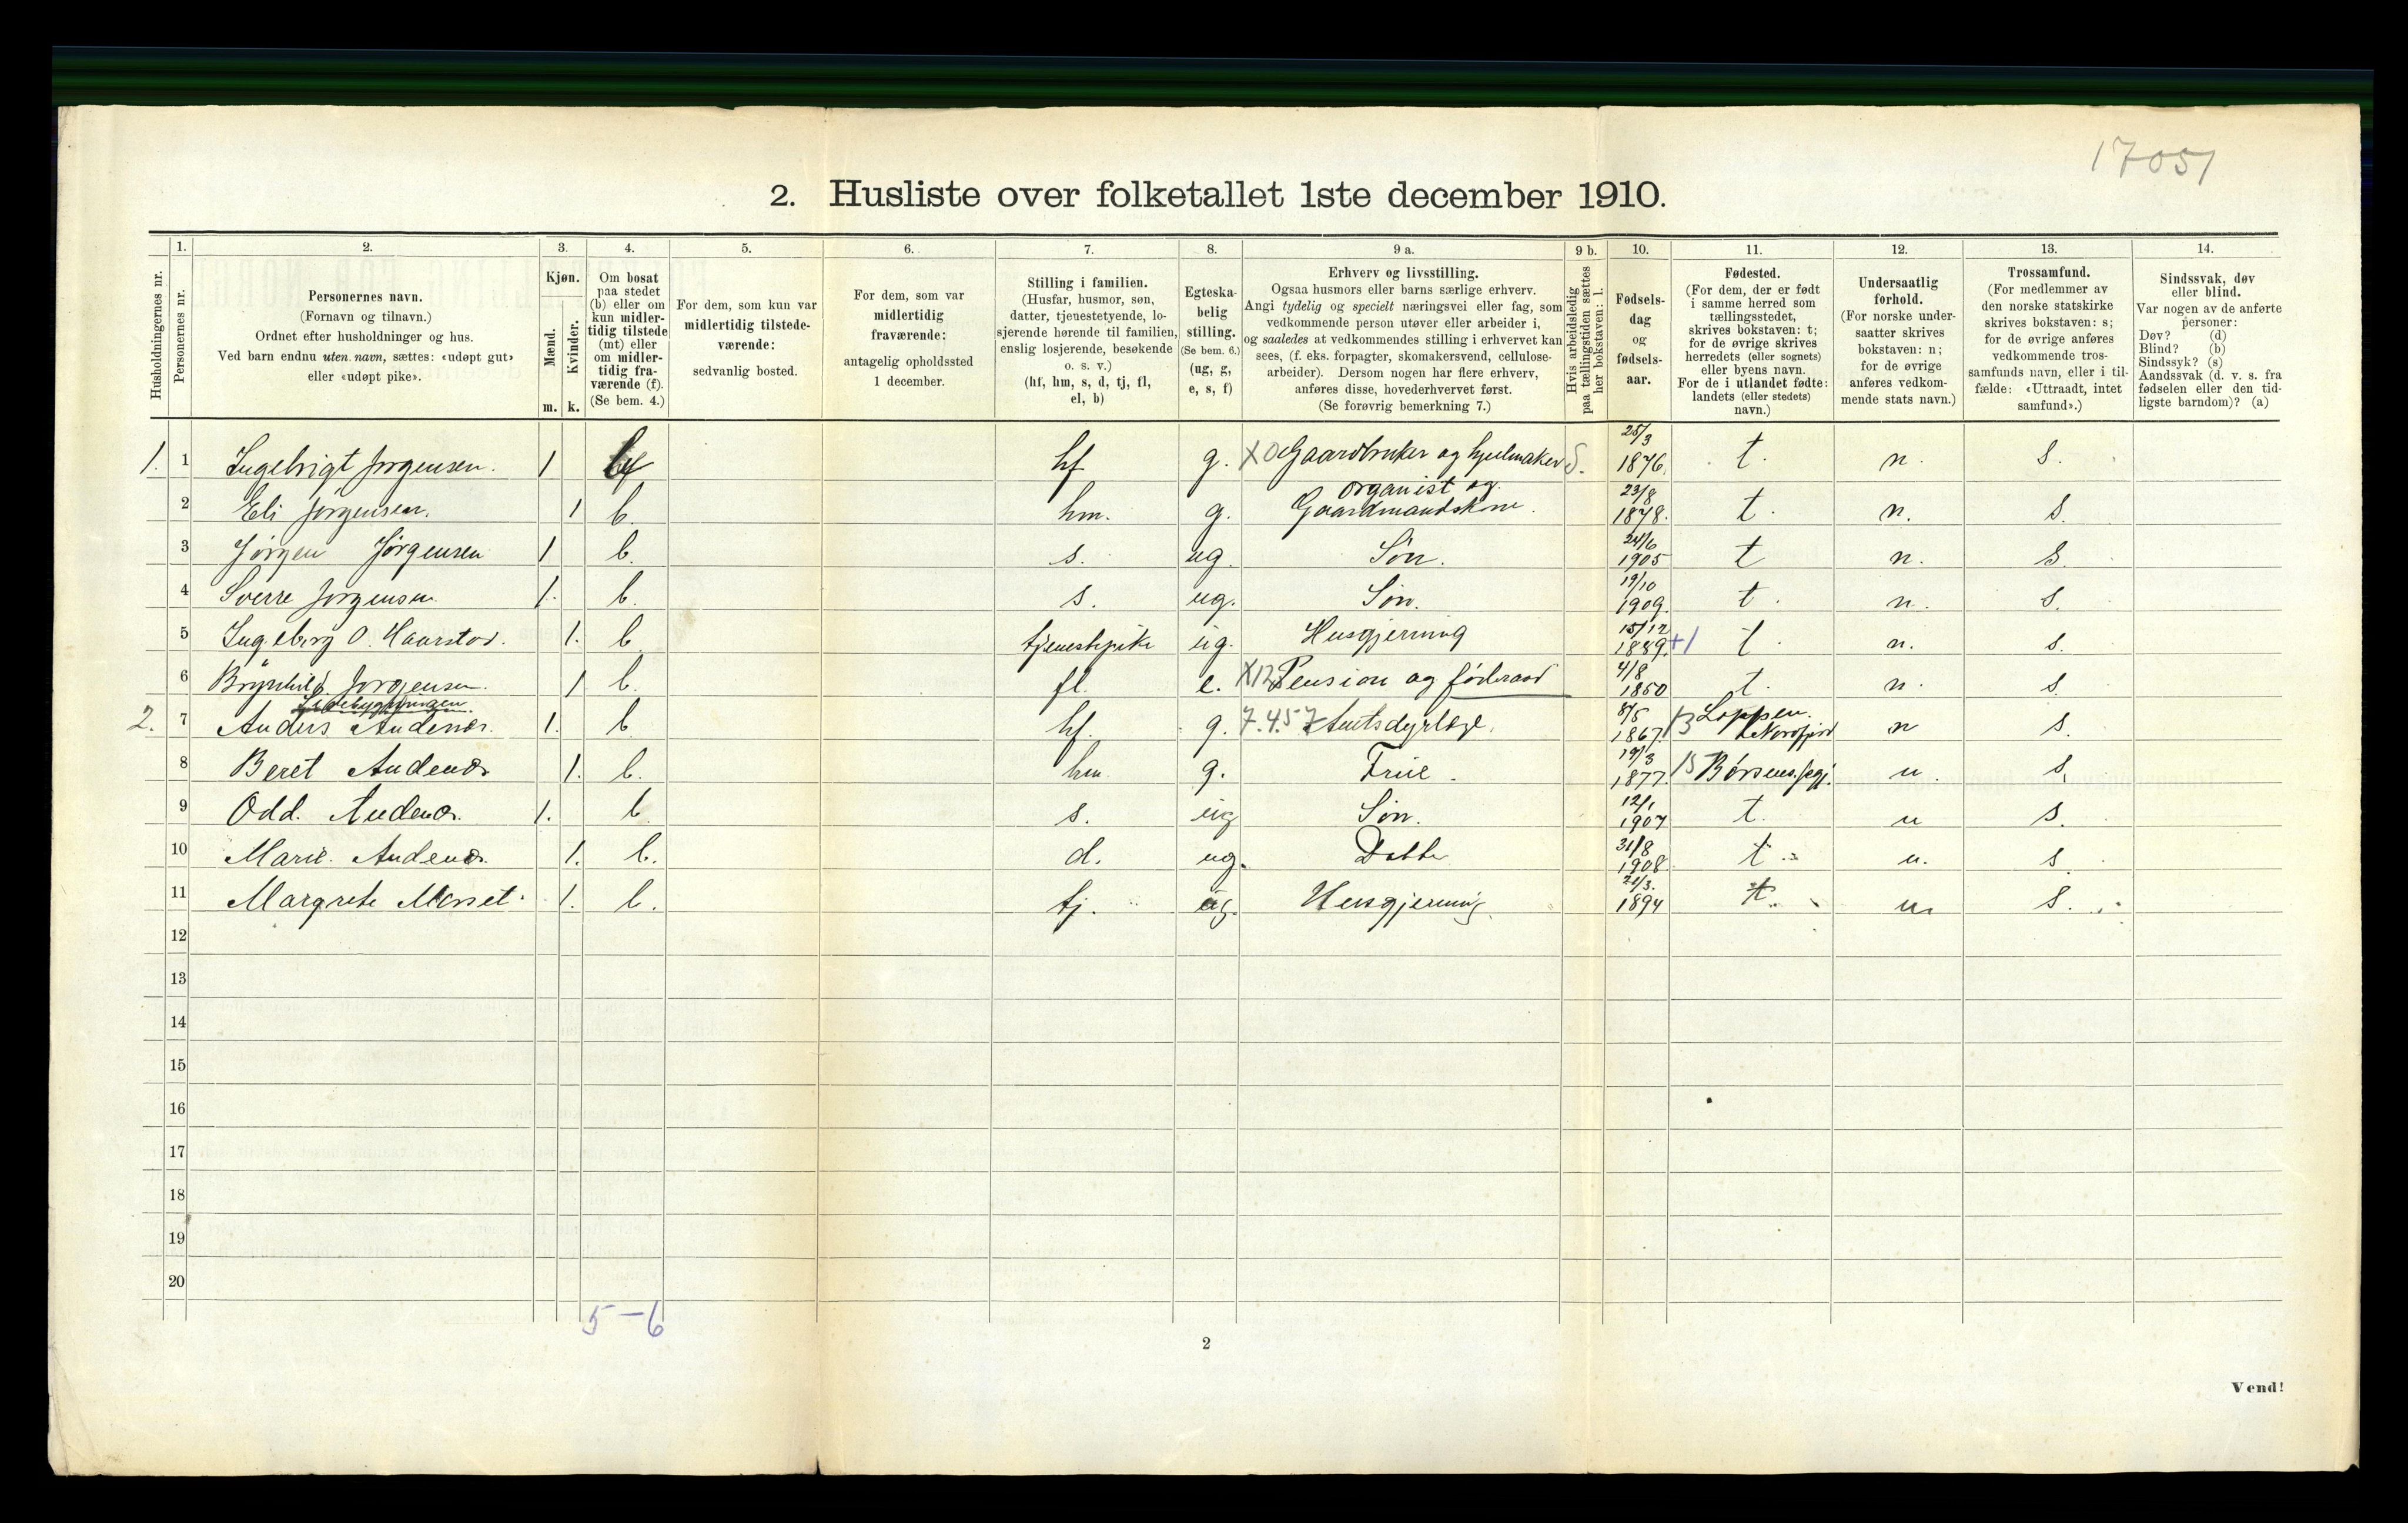 17051
2. Husliste over folketallet 1ste december 1910.
1. 2. 3. 4. 5. 6. 7. 8. 9 a. 9 b. 10. 11. 12. 13. 14.
Husholdningernes nr.
Personernes nr.
Personernes navn.
(Fornavn og tilnavn.)
Ordnet efter husholdninger og hus.
Ved barn endnu uten navn, sættes: «udøpt gut»
eller «udøpt pike».
Kjøn.
Mænd.
Kvinder.
m. k.
Om bosat
paa stedet
(b) eller om
kun midler-
tidig tilstede
(mt) eller
om midler-
tidig fra-
værende (f).
(Se bem. 4.)
For dem, som kun var
midlertidig tilstede-
værende:
sedvanlig bosted.
For dem, som var
midlertidig
fraværende:
antagelig opholdssted
1 december.
Stilling i familien.
(Husfar, husmor, søn,
datter, tjenestetyende, lo-
sjerende hørende til familien,
enslig losjerende, besøkende
o. s. v.)
(hf, hm, s, d, tj, fl,
el, b)
Egteska-
belig
stilling.
(Se bem. 6.)
(ug, g,
e, s, f)
Erhverv og livsstilling.
Ogsaa husmors eller barns særlige erhverv.
Angi tydelig og specielt næringsvei eller fag, som
vedkommende person utøver eller arbeider i,
og saaledes at vedkommendes stilling i erhvervet kan
sees, (f. eks. forpagter, skomakersvend, cellulose-
arbeider). Dersom nogen har flere erhverv,
anføres disse, hovederhvervet først.
(Se forøvrig bemerkning 7.)
Hvis arbeidsledig
paa tællingstiden sættes
her bokstaven: l.
Fødsels-
dag
og
fødsels-
aar.
Fødested.
(For dem, der er født
i samme herred som
tællingsstedet,
skrives bokstaven: t;
for de øvrige skrives
herredets (eller sognets)
eller byens navn.
For de i utlandet fødte:
landets (eller stedets)
navn.)
Undersaatlig
forhold.
(For norske under-
saatter skrives
bokstaven: n;
for de øvrige
anføres vedkom-
mende stats navn.)
Trossamfund.
(For medlemmer av
den norske statskirke
skrives bokstaven: s;
for de øvrige anføres
vedkommende tros-
samfunds navn, eller i til-
fælde: «Uttraadt, intet
samfund».)
Sindssvak, døv
eller blind.
Var nogen av de anførte
personer:
Døv? (d)
Blind? (b)
Sindssyk? (s)
Aandssvak (d. v. s. fra
fødselen eller den tid-
ligste barndom)? (a)
1. 1 Ingebrigt Jørgensen. 1 hf g. X0 Gaardbruker og hjulmaker S. 25/3 1876. t. n. s.
organist og
2 Eli Jørgensen. 1 b. hm. g. Gaardmandskone. 23/8 1878. t. n. s.
3 Jørgen Jørgensen 1 b. s. ug. Søn. 24/6 1905 t n. s.
4 Sverre Jørgensen 1. b. s. ug. Søn. 19/10 1909. t. n. s.
5 Ingeborg O. Haarstad. 1. b tjenestepike ug. Husgjerning 15/12 1889. +1 t. n. s.
6 Brynhild Jørgensen. 1 b. fl. e. X12 Pension og føderaad 4/8 1850 t. n. s
2. 7 Anders Audenæs. 1. b hf. g. 7.4.57 Amtsdyrlæge. 8/5 1867. 13 Loppen. Nordfjord n s.
8 Beret Audenæs 1. b. hm g. Frue. 19/3 1877. 15 Børsens. n. s.
9 Odd. Audenæs. 1. b. s. ug Søn. 12/1 1907 t. n s.
10 Marie. Audenæs. 1. b. d. ug. Datter 31/8 1908. t n. s
11 Margrete 1. b. tj. ug. Husgjerning. 21/3. 1894 t. n s.
12
13
14
15
16
17
18
19
20
5 – 6
2
Vend!